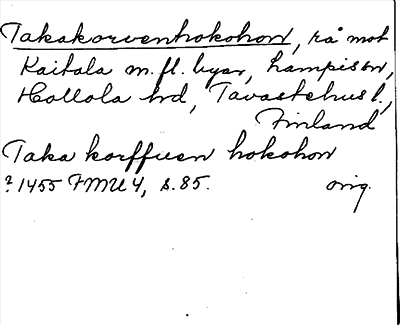 Takakorvenhokohon, rå mot
Kaitala m.fl. byar, Lampis sn,
Hollola hd, Tavastehus l.,
Finland
Taka korffuen hokohon
? 1455 FMU 4, s. 85. orig.